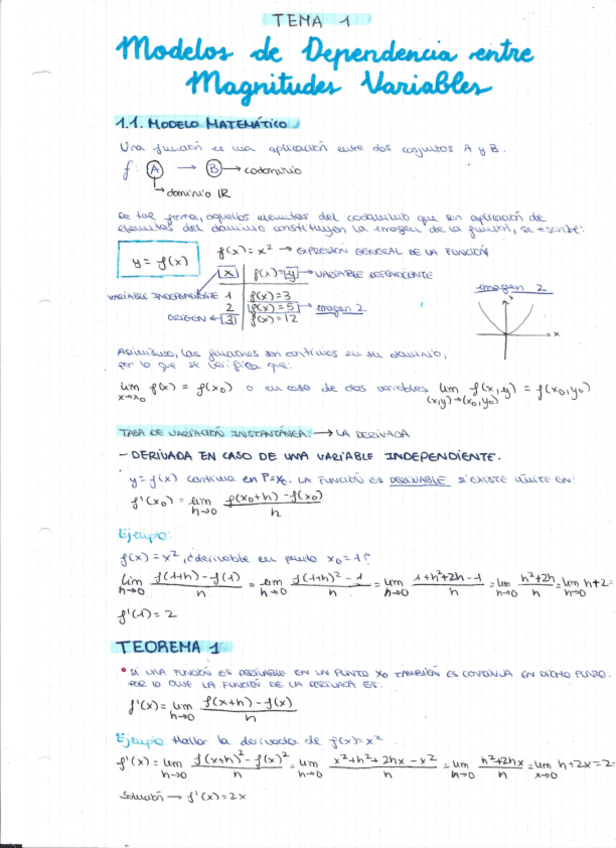 TEMA 1
Modelos de Dependencia entre
Magnitudes Variables
1.1. MODELO MATEMÁTICO
Una función es una aplicación entre dos conjuntos A y B.
f: A → B → codominio
→ dominio IR
De tal forma, aquellos elementos del codominio que son aplicación de
elementos del dominio constituyen la imagen de la función, se escribe:
y = f(x)
f(x) = x² → EXPRESIÓN GENERAL DE LA FUNCIÓN
x | f(x) = y → VARIABLE DEPENDIENTE
VARIABLE INDEPENDIENTE 1 f(x) = 3
2 f(x) = 5 → imagen 2
ORIGEN ← 3 f(x) = 12
imagen 2
y
x
Asimismo, las funciones son continuas en su dominio,
por lo que se verifica que:
lim x→x₀ f(x) = f(x₀) o en caso de dos variables lim (x,y)→(x₀,y₀) f(x,y) = f(x₀,y₀)
TASA DE VARIACIÓN INSTANTÁNEA: → LA DERIVADA
- DERIVADA EN CASO DE UNA VARIABLE INDEPENDIENTE.
y = f(x) continua en P=x₀. LA FUNCIÓN ES DERIVABLE SI EXISTE LÍMITE EN:
f'(x₀) = lim h→0 f(x₀+h) - f(x₀) / h
Ejemplo:
f(x) = x², ¿derivable en punto x₀ = 1?
lim h→0 f(1+h) - f(1) / h = lim h→0 f(1+h)² - 1 / h = lim h→0 1+h²+2h-1 / h = lim h→0 h²+2h / h = lim h→0 h+2 =
f'(1) = 2
TEOREMA 1
• SI UNA FUNCIÓN ES DERIVABLE EN UN PUNTO X₀ TAMBIÉN ES CONTINUA EN DICHO PUNTO.
POR LO QUE LA FUNCIÓN DE LA DERIVADA ES:
f'(x) = lim h→0 f(x+h) - f(x) / h
Ejemplo: Hallar la derivada de f(x) = x²
f'(x) = lim h→0 f(x+h)² - f(x)² / h = lim h→0 x²+h²+2hx-x² / h = lim h→0 h²+2hx / h = lim x→0 h+2x = 2
Solución → f'(x) = 2x